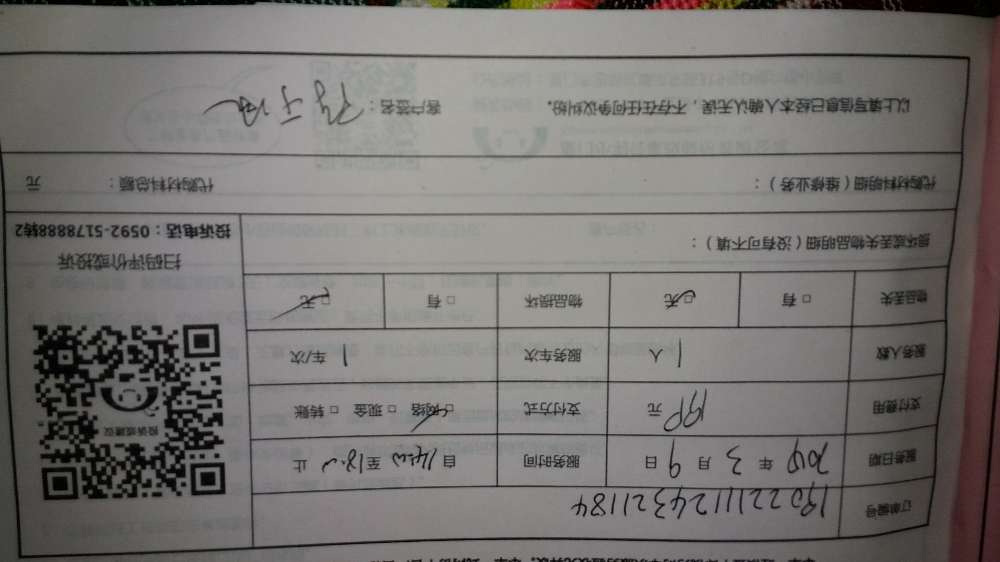 订单编号 1902211124321184
服务日期 2019年3月9日 服务时间 自14:00至18:00止
支付费用 199元 支付方式 □网络 □现金 □转账
服务人数 1人 服务车次 1车/次
物品丢失 □有 □无 物品损坏 □有 □无
损坏或丢失物品明细(没有可不填):
投诉或建议
扫码评价或投诉
投诉电话:0592-5178888转2
代购材料明细(维修业务): 代购材料总额: 元
以上填写信息已经本人确认无误,不存在任何争议纠纷。 客户签名: